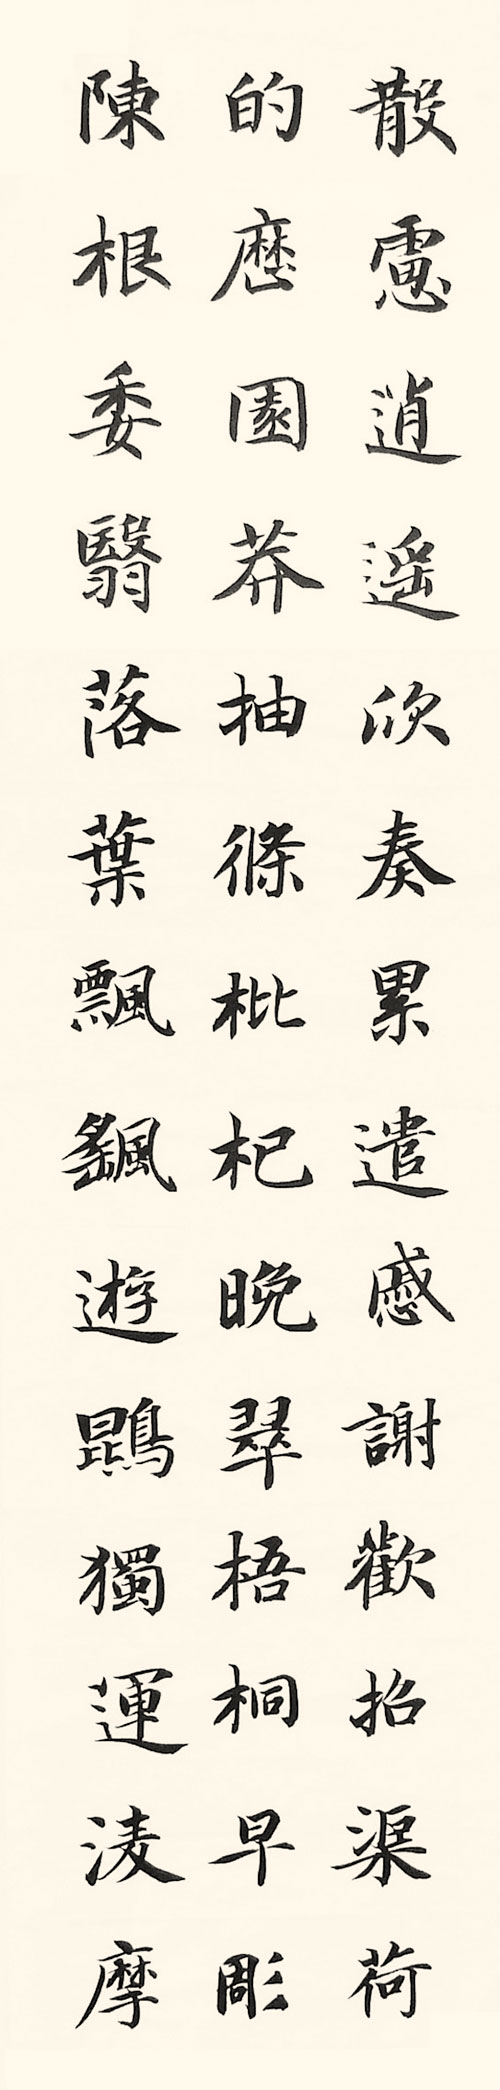 散慮逍遥欣奏累遣慼謝歡招渠荷
的歷園莽抽條枇杷晚翠梧桐早彫
陳根委翳落葉飄颻遊鵾獨運凌摩